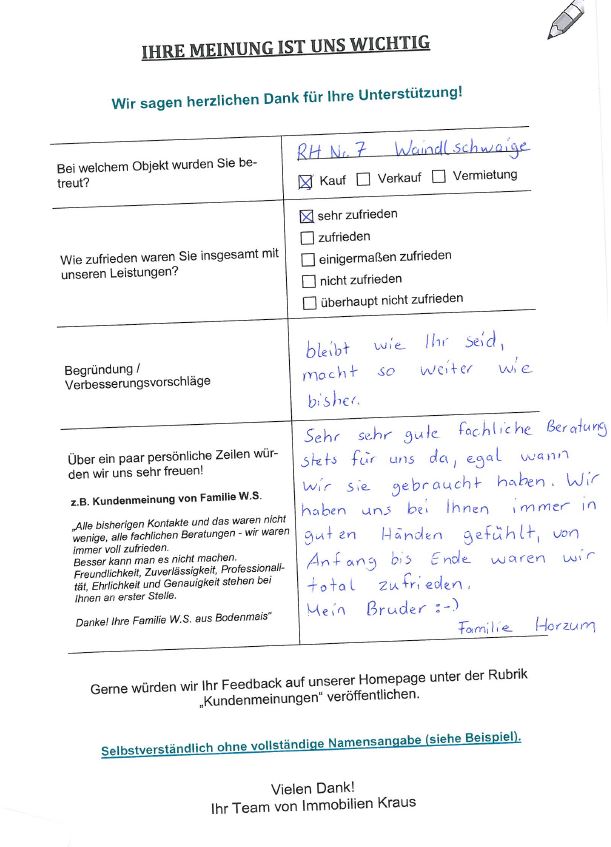 IHRE MEINUNG IST UNS WICHTIG
Wir sagen herzlichen Dank für Ihre Unterstützung!
Bei welchem Objekt wurden Sie be-
treut?
RH Nr. 7 Waindlschwaige
Kauf Verkauf Vermietung
Wie zufrieden waren Sie insgesamt mit
unseren Leistungen?
sehr zufrieden
zufrieden
einigermaßen zufrieden
nicht zufrieden
überhaupt nicht zufrieden
Begründung /
Verbesserungsvorschläge
bleibt wie Ihr seid,
macht so weiter wie
bisher.
Über ein paar persönliche Zeilen wür-
den wir uns sehr freuen!
z.B. Kundenmeinung von Familie W.S.
„Alle bisherigen Kontakte und das waren nicht
wenige, alle fachlichen Beratungen - wir waren
immer voll zufrieden.
Besser kann man es nicht machen.
Freundlichkeit, Zuverlässigkeit, Professionali-
tät, Ehrlichkeit und Genauigkeit stehen bei
Ihnen an erster Stelle.
Danke! Ihre Familie W.S. aus Bodenmais"
Sehr sehr gute fachliche Beratung
stets für uns da, egal wann
wir sie gebraucht haben. Wir
haben uns bei Ihnen immer in
guten Händen gefühlt, von
Anfang bis Ende waren wir
total zufrieden.
Mein Bruder :-)
Familie Horzum
Gerne würden wir Ihr Feedback auf unserer Homepage unter der Rubrik
„Kundenmeinungen" veröffentlichen.
Selbstverständlich ohne vollständige Namensangabe (siehe Beispiel).
Vielen Dank!
Ihr Team von Immobilien Kraus